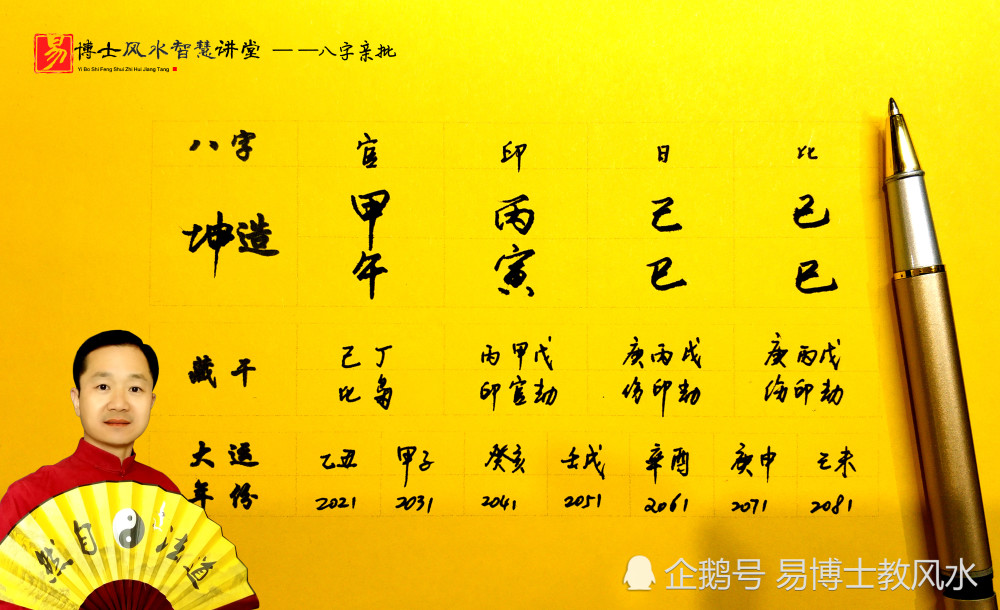 易 博士风水智慧讲堂 ——八字亲批
Yi Bo Shi Feng Shui Zhi Hui Jiang Tang
八字 官 印 日 比
坤造 甲 丙 己 己
午 寅 巳 巳
藏干 己丁 丙甲戊 庚丙戊 庚丙戊
比枭 印官劫 伤印劫 伤印劫
大运 乙丑 甲子 癸亥 壬戌 辛酉 庚申 己未
年份 2021 2031 2041 2051 2061 2071 2081
然自法道
企鹅号 易博士教风水